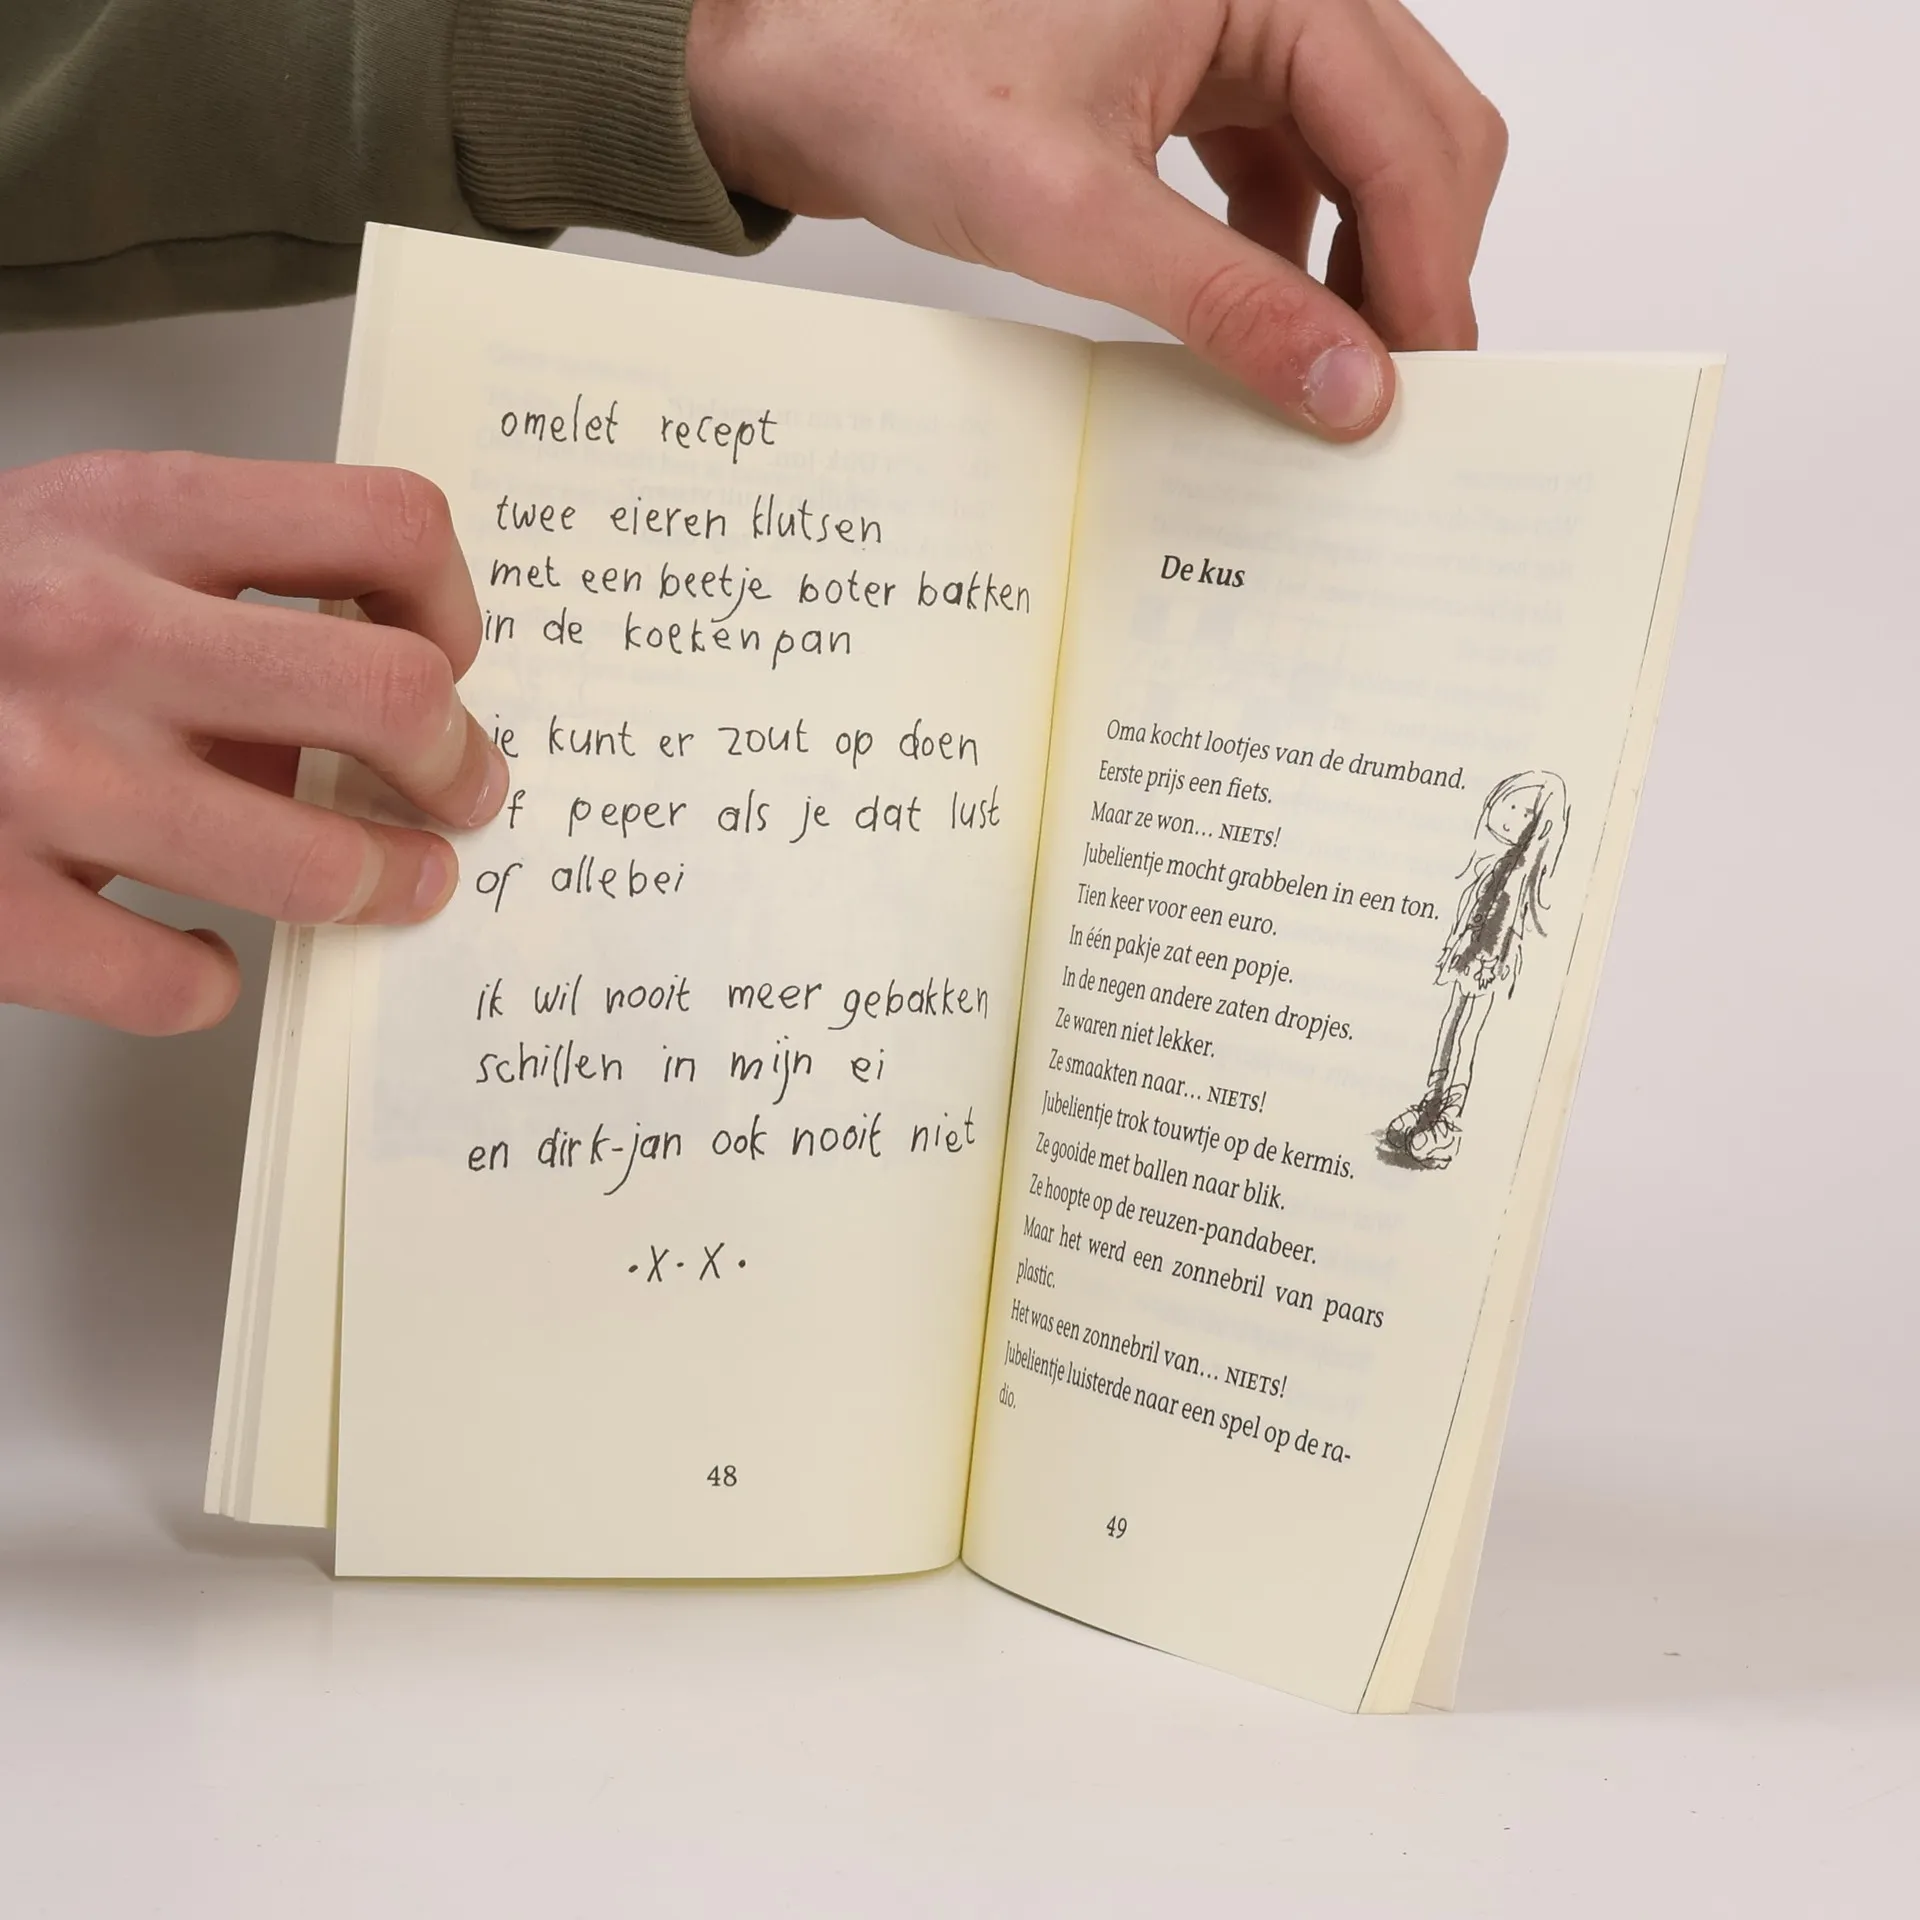 omelet recept
twee eieren klutsen
met een beetje boter bakken
in de koekenpan
je kunt er zout op doen
f peper als je dat lust
of allebei
ik wil nooit meer gebakken
schillen in mijn ei
en dirk-jan ook nooit niet
.X.X.
48
De kus
Oma kocht lootjes van de drumband.
Eerste prijs een fiets.
Maar ze won... NIETS!
Jubelientje mocht grabbelen in een ton.
Tien keer voor een euro.
In één pakje zat een popje.
In de negen andere zaten dropjes.
Ze waren niet lekker.
Ze smaakten naar... NIETS!
Jubelientje trok touwtje op de kermis.
Ze gooide met ballen naar blik.
Ze hoopte op de reuzen-pandabeer.
Maar het werd een zonnebril van paars
plastic.
Het was een zonnebril van... NIETS!
Jubelientje luisterde naar een spel op de ra-
dio.
49